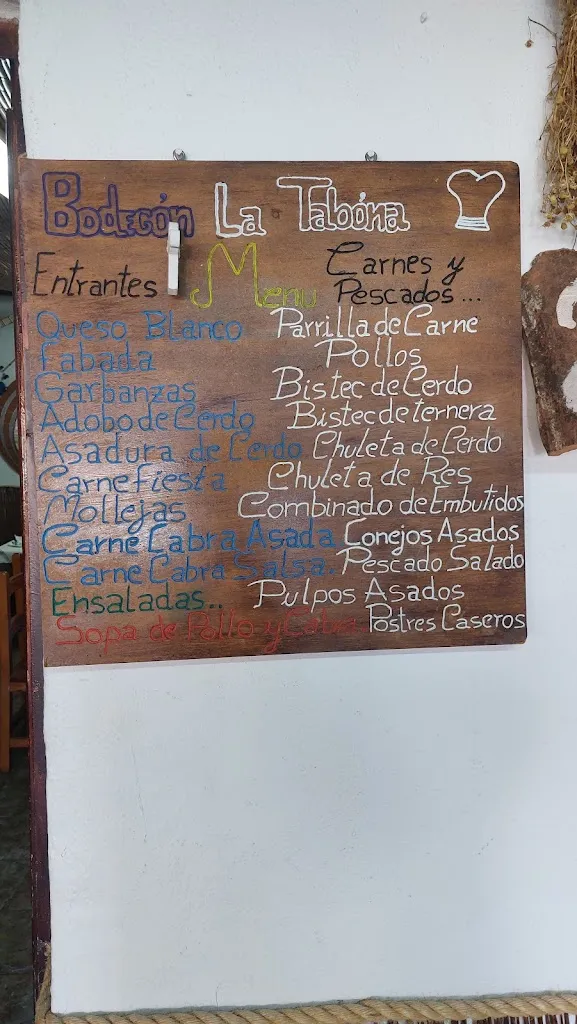 Bodegón La Tabóna
Menu
Entrantes
Queso Blanco
Fabada
Garbanzas
Adobo de Cerdo
Asadura de Cerdo
Carne Fiesta
Mollejas
Carne Cabra Asada
Carne Cabra Salsa..
Ensaladas..
Sopa de Pollo y Cabra
Carnes y
Pescados...
Parrilla de Carne
Pollos
Bistec de Cerdo
Bistec de ternera
Chuleta de Cerdo
Chuleta de Res
Combinado de Embutidos
Conejos Asados
Pescado Salado
Pulpos Asados
Postres Caseros